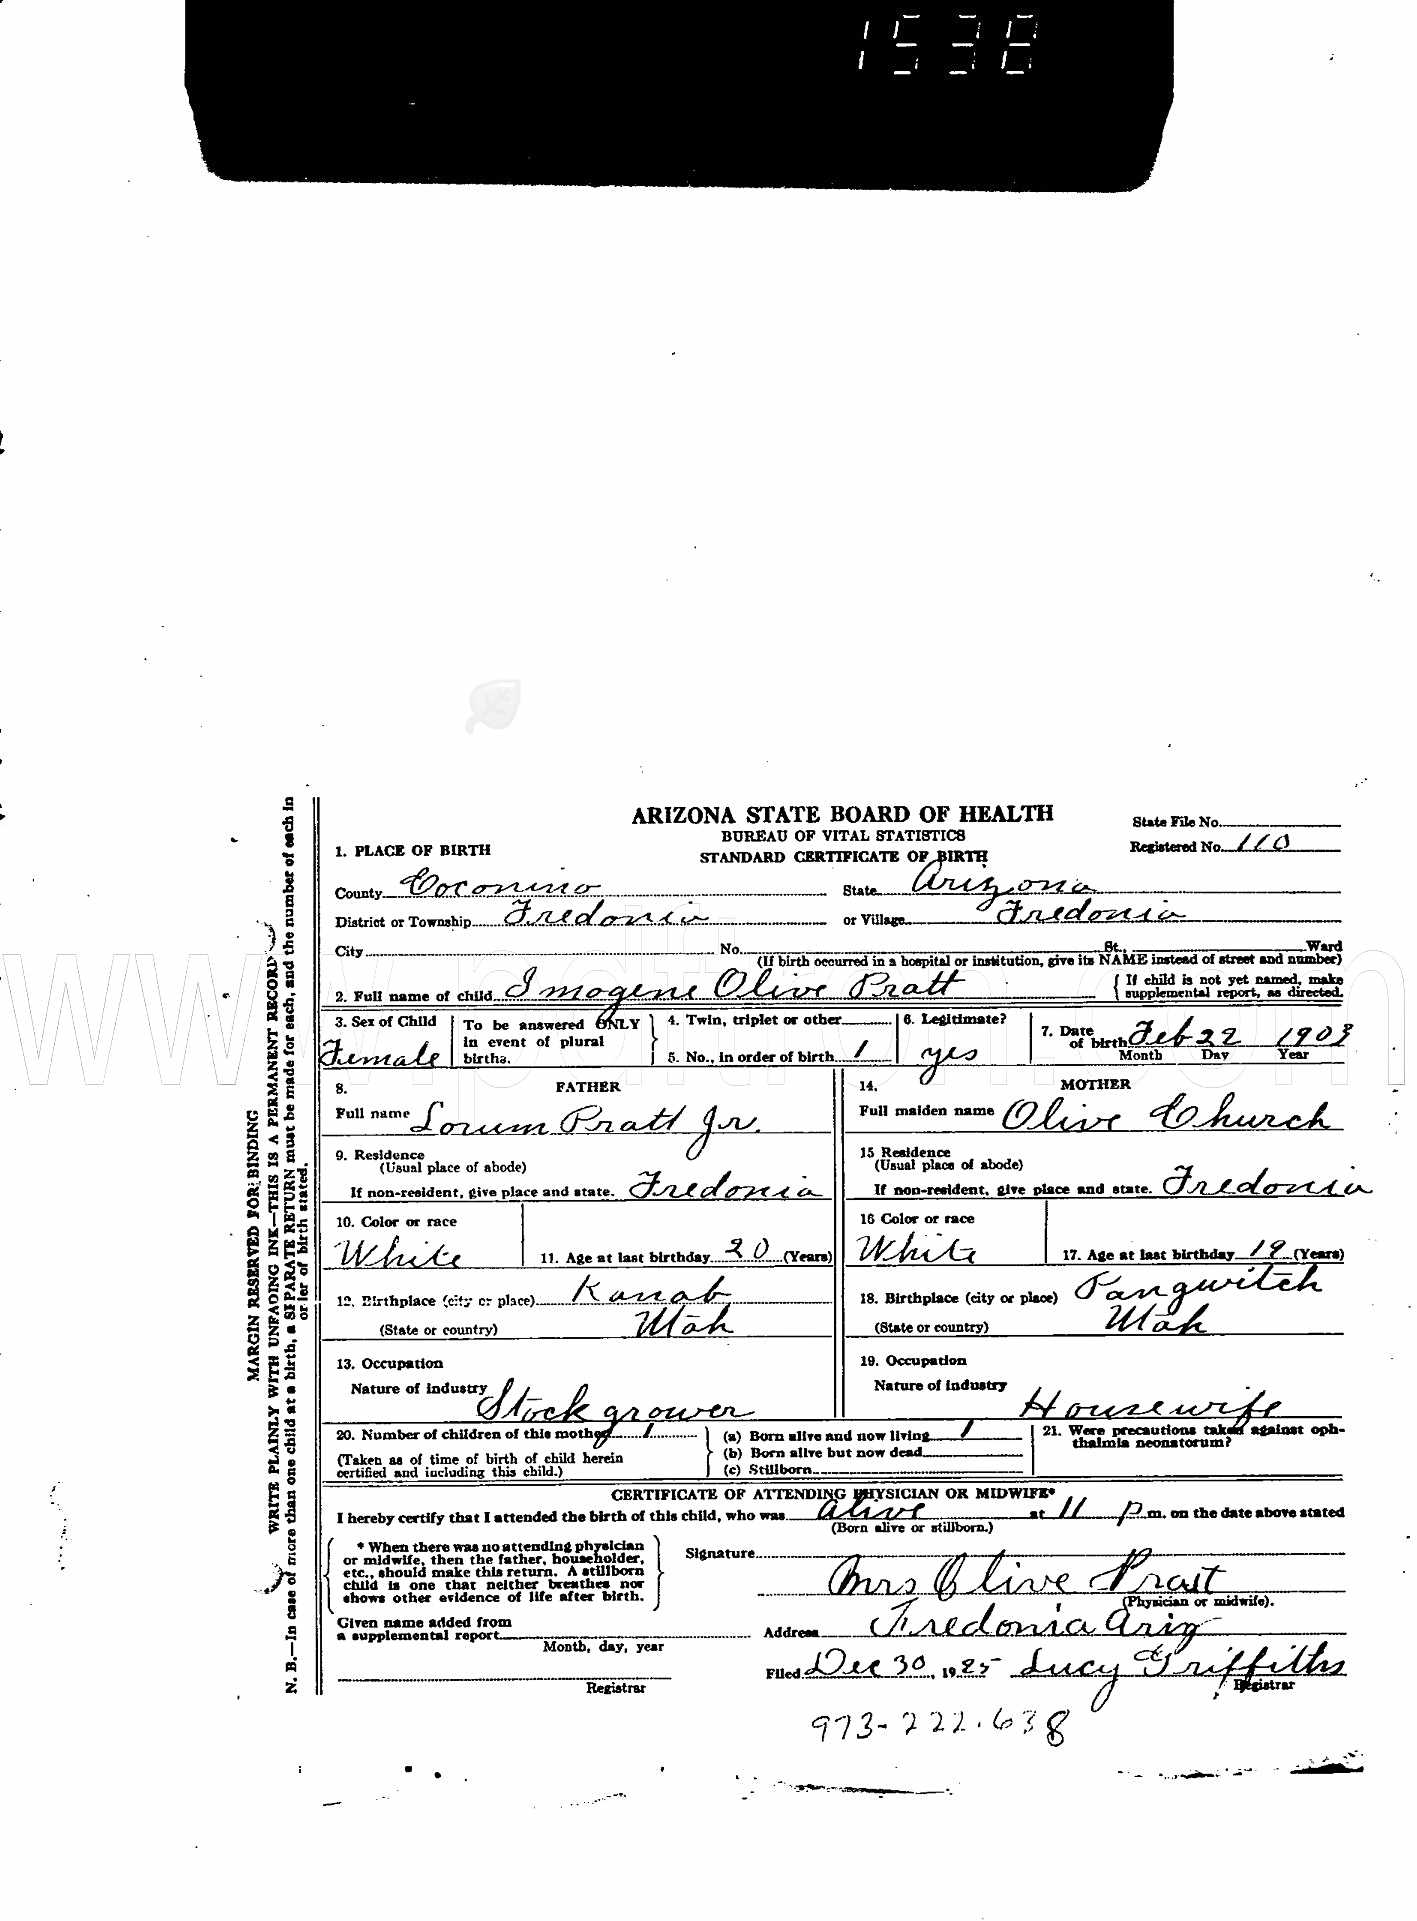 1538
ARIZONA STATE BOARD OF HEALTH
BUREAU OF VITAL STATISTICS
STANDARD CERTIFICATE OF BIRTH
State File No.
Registered No. 110
1. PLACE OF BIRTH
County Coconino State Arizona
District or Township Fredonia or Village Fredonia
City No. St., Ward
(If birth occurred in a hospital or institution, give its NAME instead of street and number)
2. Full name of child Imogene Olive Pratt { If child is not yet named, make supplemental report, as directed.
3. Sex of Child Female
To be answered ONLY in event of plural births.
4. Twin, triplet or other
5. No., in order of birth 1
6. Legitimate? yes
7. Date of birth Feb 22 1903
Month Day Year
8. FATHER
Full name Lorum Pratt Jr.
9. Residence
(Usual place of abode)
If non-resident, give place and state. Fredonia
10. Color or race White
11. Age at last birthday 20 (Years)
12. Birthplace (city or place) Kanab
(State or country) Utah
13. Occupation
Nature of industry Stock grower
14. MOTHER
Full maiden name Olive Church
15 Residence
(Usual place of abode)
If non-resident, give place and state. Fredonia
16 Color or race White
17. Age at last birthday 19 (Years)
18. Birthplace (city or place) Pangwitch
(State or country) Utah
19. Occupation
Nature of industry Housewife
20. Number of children of this mother 1
(Taken as of time of birth of child herein certified and including this child.)
(a) Born alive and now living 1
(b) Born alive but now dead
(c) Stillborn
21. Were precautions taken against ophthalmia neonatorum?
CERTIFICATE OF ATTENDING PHYSICIAN OR MIDWIFE*
I hereby certify that I attended the birth of this child, who was alive at 11 p m. on the date above stated
(Born alive or stillborn.)
* When there was no attending physician
or midwife, then the father, householder,
etc., should make this return. A stillborn
child is one that neither breathes nor
shows other evidence of life after birth.
Signature
Mrs Olive Pratt
(Physician or midwife).
Given name added from
a supplemental report
Month, day, year
Address Fredonia Ariz
Filed Dec 30, 1925 Lucy Griffiths
Registrar
Registrar
973-222-638
MARGIN RESERVED FOR BINDING
WRITE PLAINLY WITH UNFADING INK—THIS IS A PERMANENT RECORD
N. B.—In case of more than one child at a birth, a SEPARATE RETURN must be made for each, and the number of each in
order of birth stated.